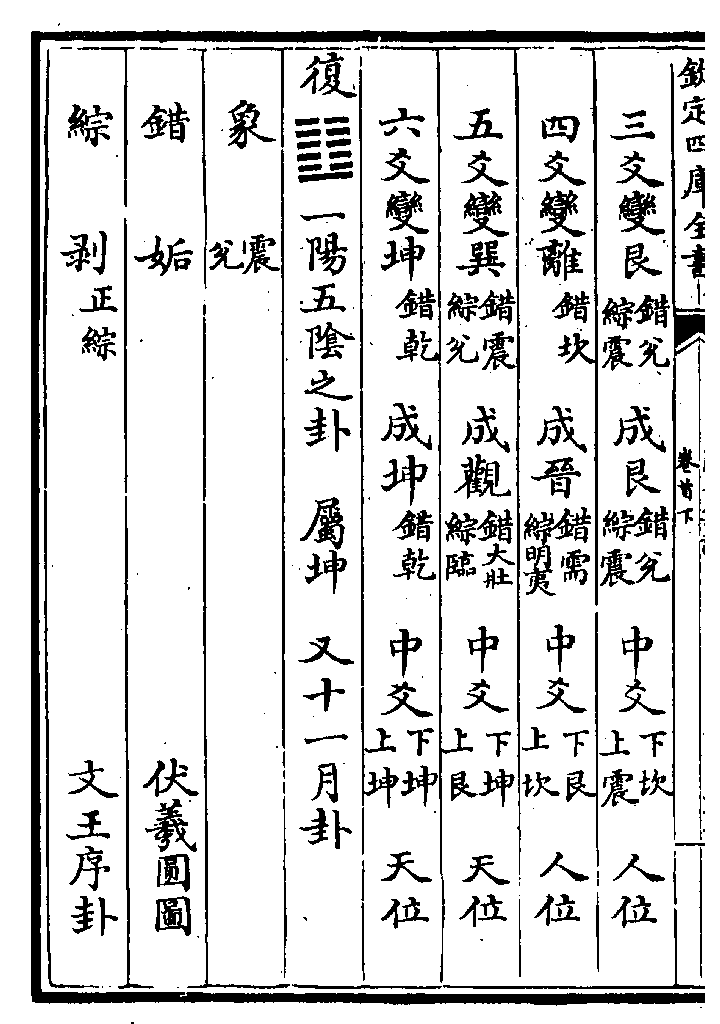 欽定四庫全書
卷首下
三爻變艮錯兌綜震 成艮錯兌綜震 中爻下坎上震 人位
四爻變離錯坎 成晉錯需綜明夷 中爻下艮上坎 人位
五爻變巽錯震綜兌 成觀錯大壯綜臨 中爻下坤上艮 天位
六爻變坤錯乾 成坤錯乾 中爻下坤上坤 天位
復䷗一陽五陰之卦 屬坤 又十一月卦
象 震兌
錯 姤 伏羲圓圖
綜 剥正綜 文王序卦